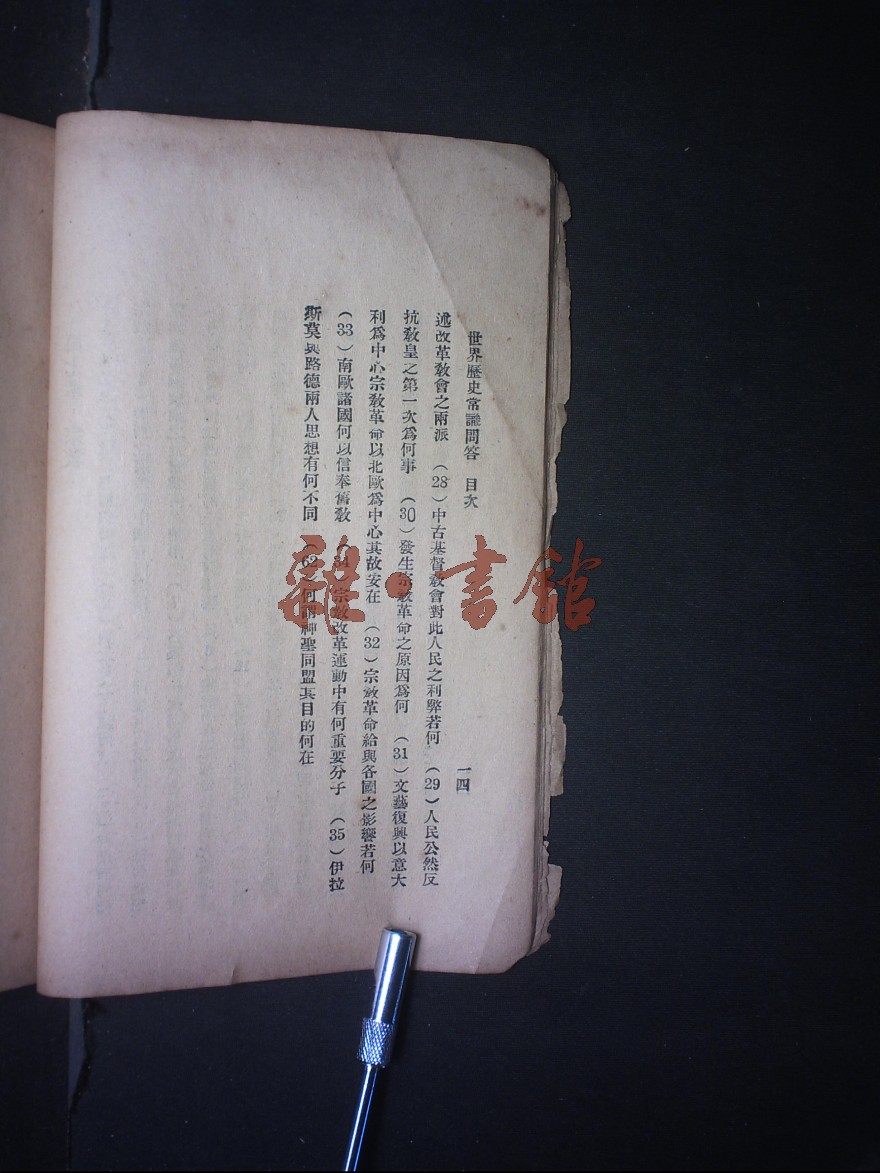 世界歷史常識問答　目次　一四
述改革敎會之兩派　(28)中古基督敎會對此人民之利弊若何　(29)人民公然反
抗敎皇之第一次爲何事　(30)發生宗敎革命之原因爲何　(31)文藝復興以意大
利爲中心宗敎革命以北歐爲中心其故安在　(32)宗敎革命給與各國之影響若何
(33)南歐諸國何以信奉舊敎　(34)宗敎改革運動中有何重要分子　(35)伊拉
斯莫與路德兩人思想有何不同　(62)何謂神聖同盟其目的何在
雜·書館